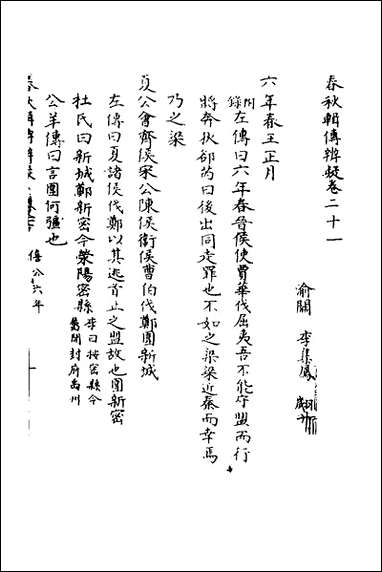 春秋輯傳辨疑卷二十一
渝關 李集鳳 翽升
六年春王正月
附錄左傳曰六年春晉侯使賈華伐屈夷吾不能守盟而行
將奔狄郤芮曰後出同走罪也不如之梁梁近秦而幸焉
乃之梁
夏公會齊侯宋公陳侯衛侯曹伯伐鄭圍新城
左傳曰夏諸侯伐鄭以其逃首止之盟故也圍新密
杜氏曰新城鄭新密今滎陽密縣 李曰按密縣今屬開封府禹州
公羊傳曰言圍何彊也
春秋輯傳辨疑 僖公六年